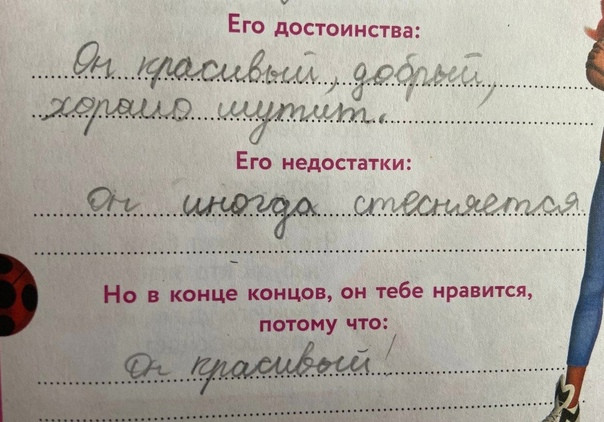 Его достоинства:
Он красивый, добрый,
хорошо шутит.
Его недостатки:
Он иногда стесняется
Но в конце концов, он тебе нравится,
потому что:
Он красивый!